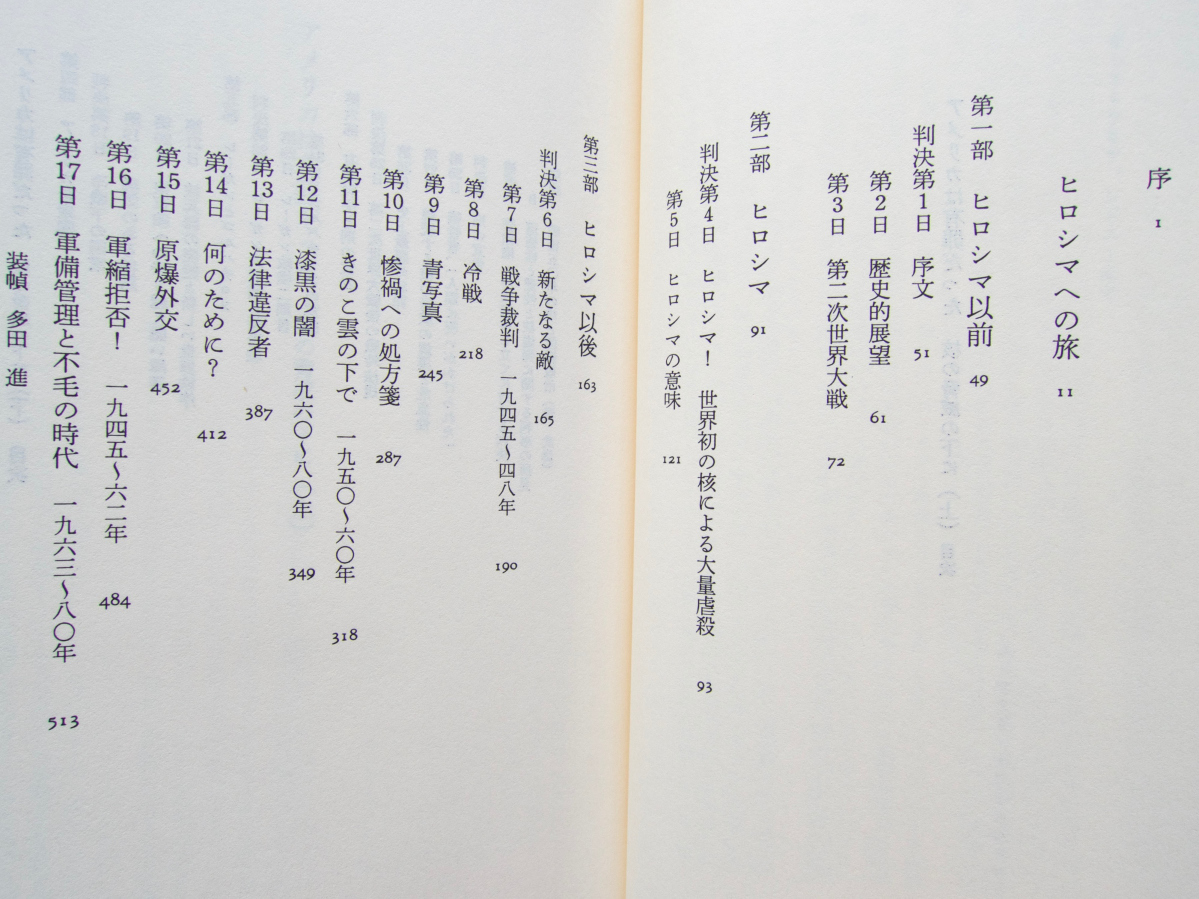 序 1
ヒロシマへの旅 11
第一部 ヒロシマ以前 49
判決第1日 序文 51
第2日 歴史的展望 61
第3日 第二次世界大戦 72
第二部 ヒロシマ 91
判決第4日 ヒロシマ! 世界初の核による大量虐殺 93
第5日 ヒロシマの意味 121
第三部 ヒロシマ以後 163
判決第6日 新たなる敵 165
第7日 戦争裁判 一九四五〜四八年 190
第8日 冷戦 218
第9日 青写真 245
第10日 惨禍への処方箋 287
第11日 きのこ雲の下で 一九五〇〜六〇年 318
第12日 漆黒の闇 一九六〇〜八〇年 349
第13日 法律違反者 387
第14日 何のために? 412
第15日 原爆外交 452
第16日 軍縮拒否! 一九四五〜六二年 484
第17日 軍備管理と不毛の時代 一九六三〜八〇年 513
装幀 多田 進